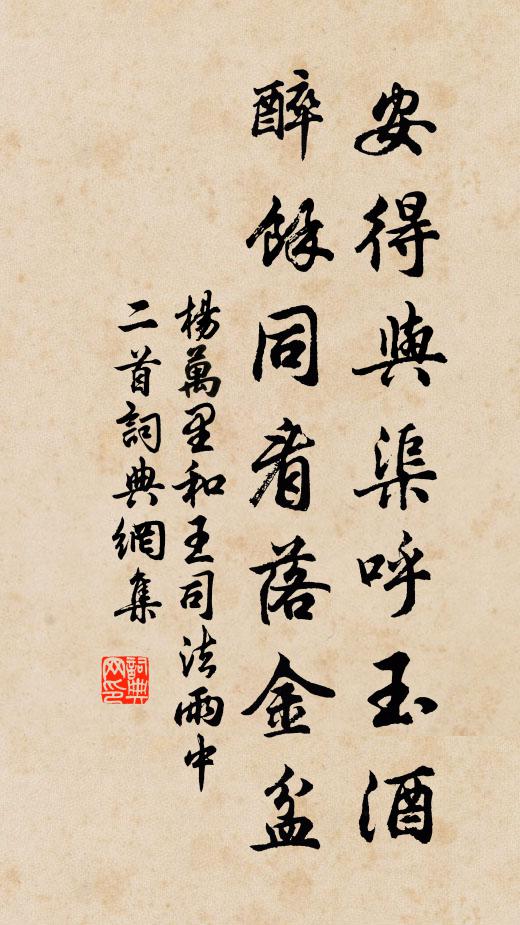 安得與渠呼玉酒
醉餘同看落金盆
楊萬里和王司法雨中
二首詞典網集
詞典網印